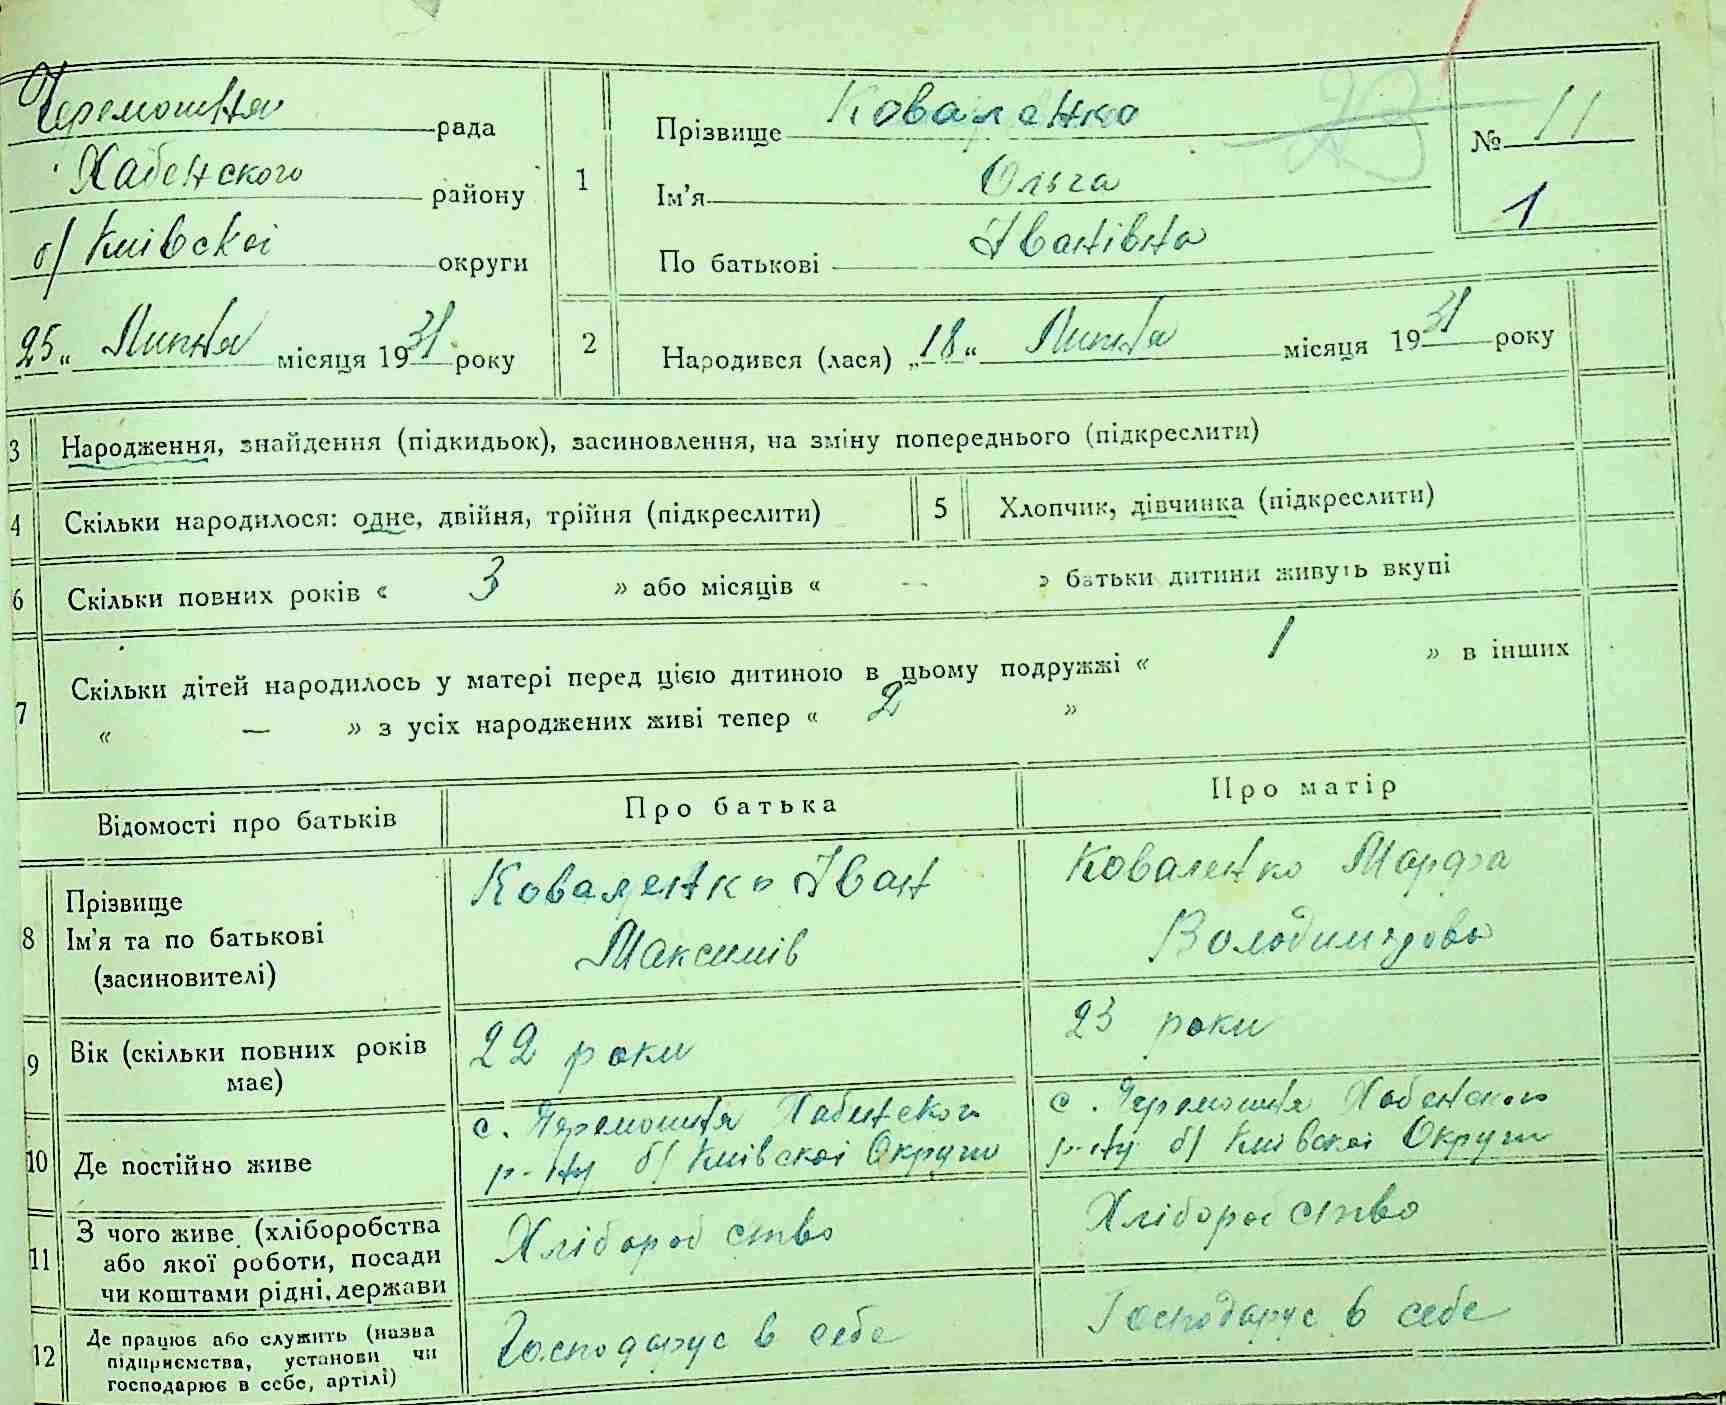 Черемошня рада
Хабенского району
б/ Київскої округи
25 " Липня місяця 1931 року
1
Прізвище Коваленко
Ім'я Ольга
По батькові Іванівна
№ 11
1
2
Народився (лася) „18“ Липня місяця 1931 року
3 Народження, знайдення (підкидьок), засиновлення, на зміну попереднього (підкреслити)
4 Скільки народилося: одне, двійня, трійня (підкреслити)
5 Хлопчик, дівчинка (підкреслити)
6 Скільки повних років « 3 » або місяців « — » батьки дитини живуть вкупі
7 Скільки дітей народилось у матері перед цією дитиною в цьому подружжі « 1 » в інших
« — » з усіх народжених живі тепер « 2 »
Відомості про батьків
Про батька
Про матір
8
Прізвище
Ім'я та по батькові
(засиновителі)
Коваленко Іван
Максимів
Коваленко Марфа
Володимирова
9
Вік (скільки повних років
має)
22 роки
23 роки
10 Де постійно живе
с. Черемошня Хабенского
р-ну б/ Київскої Округи
с. Черемошня Хабенского
р-ну б/ Київскої Округи
11
З чого живе (хліборобства
або якої роботи, посади
чи коштами рідні, держави
Хліборобство
Хліборобство
12
Де працює або служить (назва
підприємства, установи чи
господарює в себе, артілі)
Господарує в себе
Господарує в себе